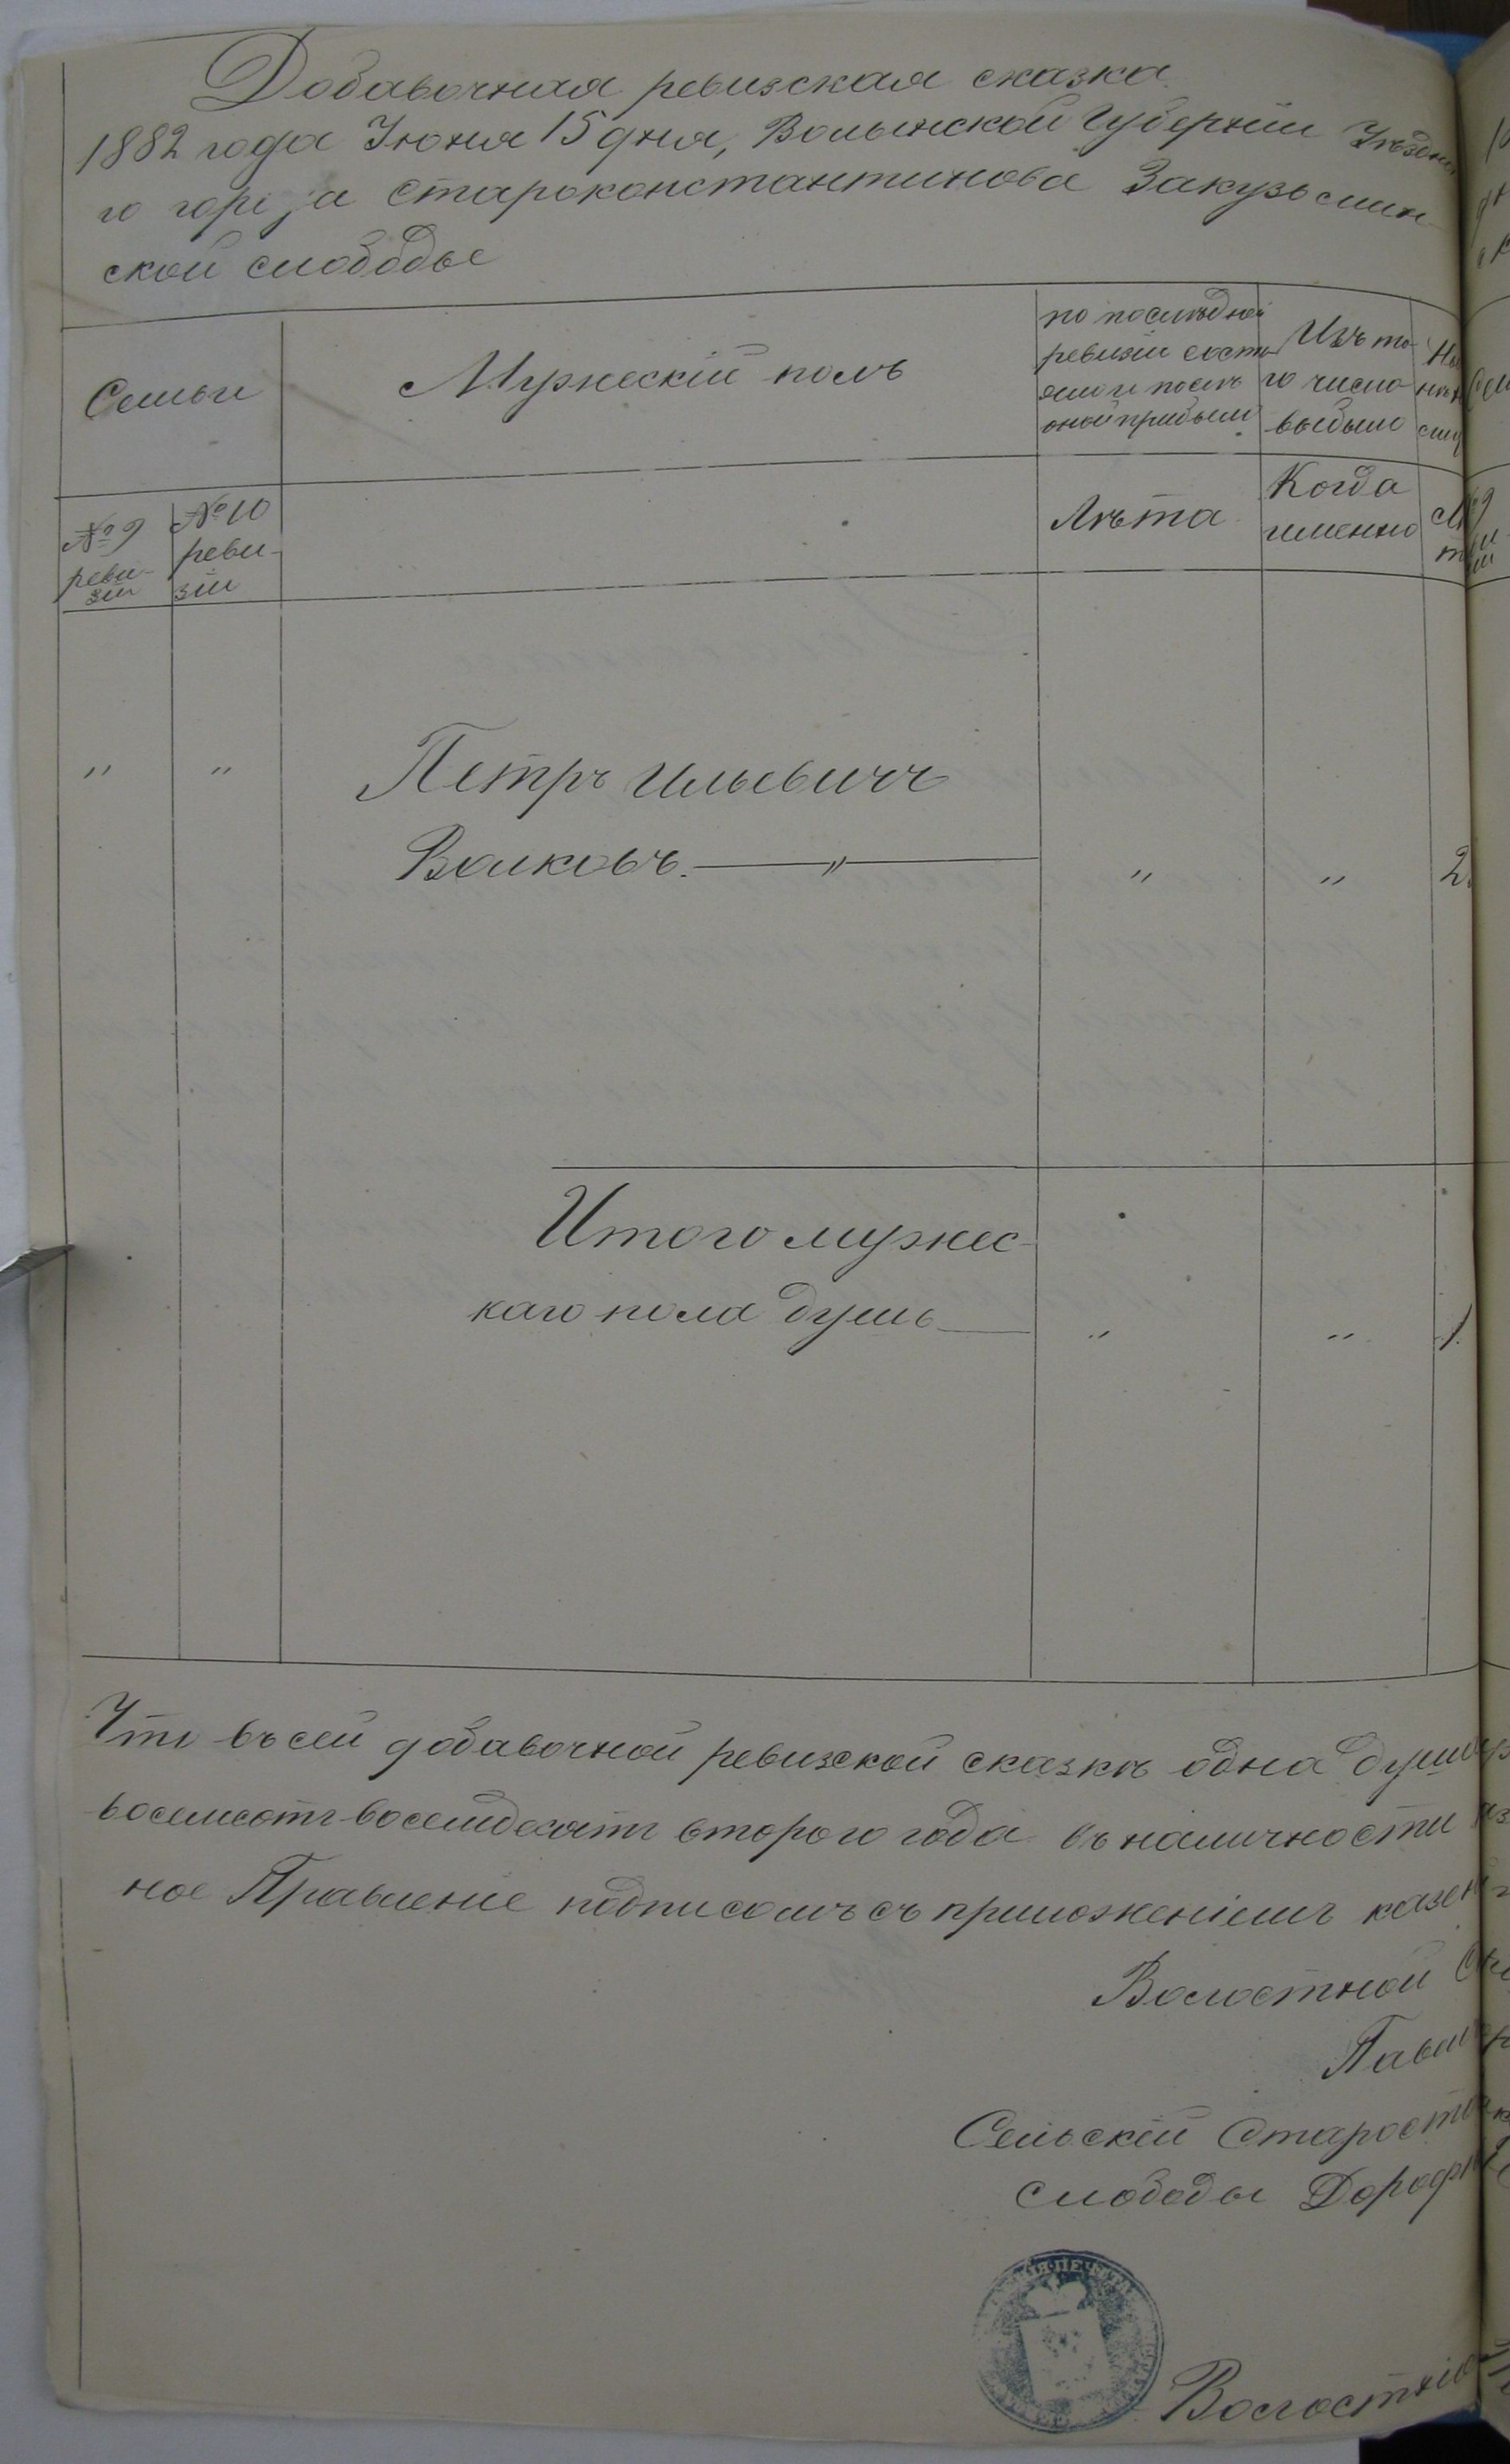 Добавочная ревизская сказка
1882 года Іюня 15 дня, Волынской Губерніи Уѣздна
го города Староконстантинова Закузьмин
ской слободы
Семьи
Мужескій полъ
по послѣдней
ревизіи состо-
яло и послѣ
оной прибыло
Изъ то-
го числа
выбыло
№ 9
реви-
зіи
№ 10
реви-
зіи
Лѣта
Когда
именно
" "
Петръ Ильевичъ
Волковъ. — " —
" " 2
Итого мужес-
каго пола душъ
" " 1
Что въ сей добавочной ревизской сказкѣ одна душа
восемсотъ восемдесятъ второго года въ наличности
ное Правленіе подписомъ съ приложеніемъ казен
Волостной
Павл
Сельскій Староста
слободы Дороф
Волостн